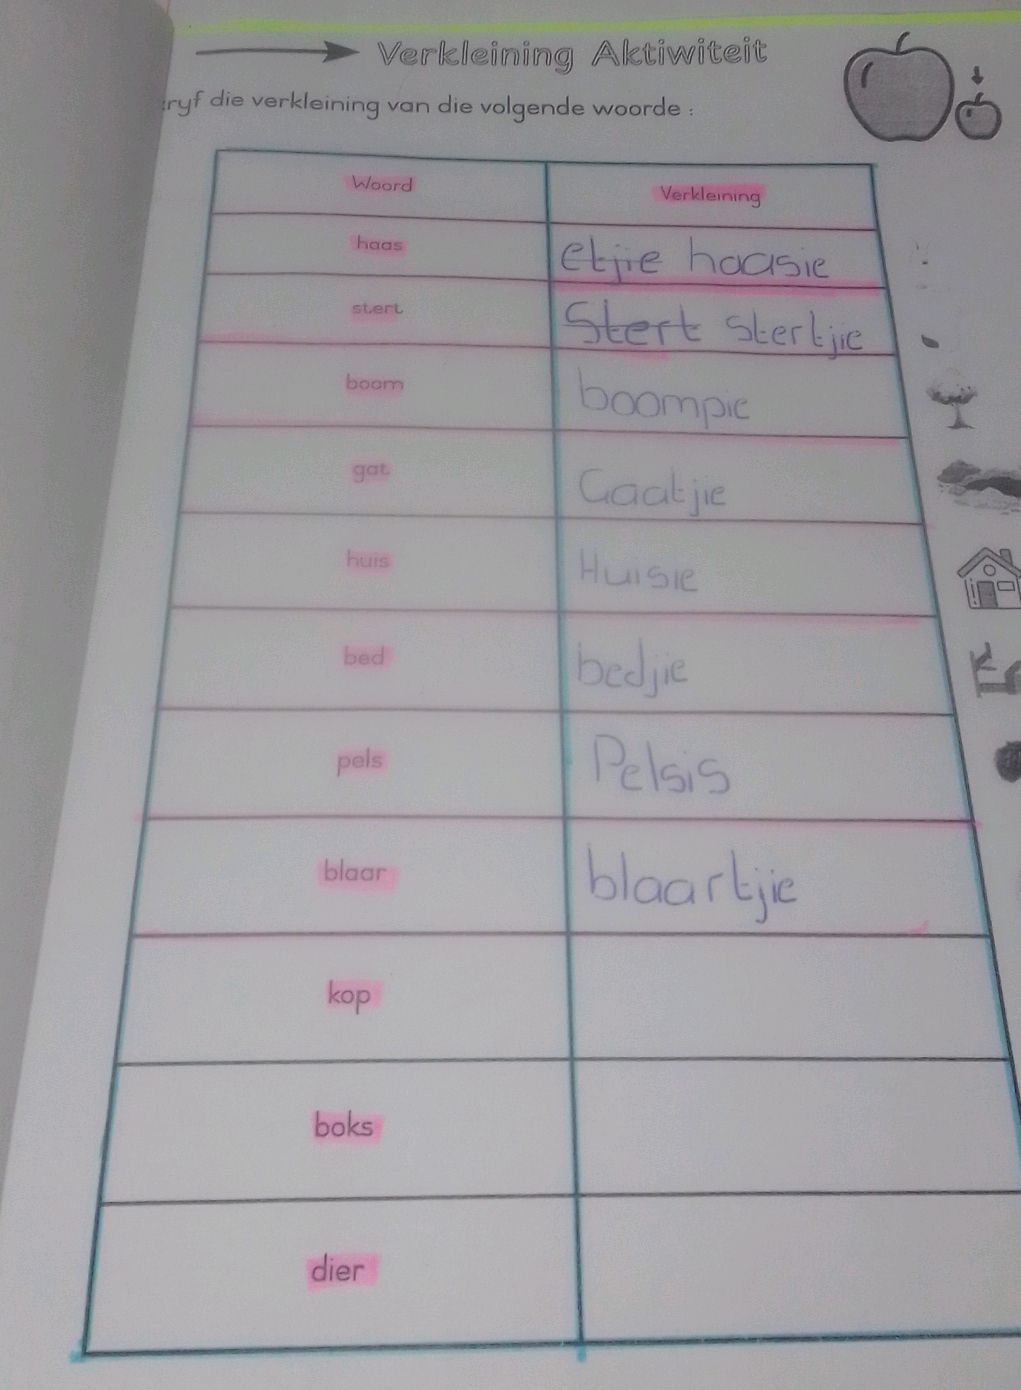 Verkleining Aktiwiteit
ryf die verkleining van die volgende woorde :
Woord Verkleining
haas etjie haasie
stert Stert stertjie
boom boompie
gat Gaatjie
huis Huisie
bed bedjie
pels Pelsis
blaar blaartjie
kop
boks
dier